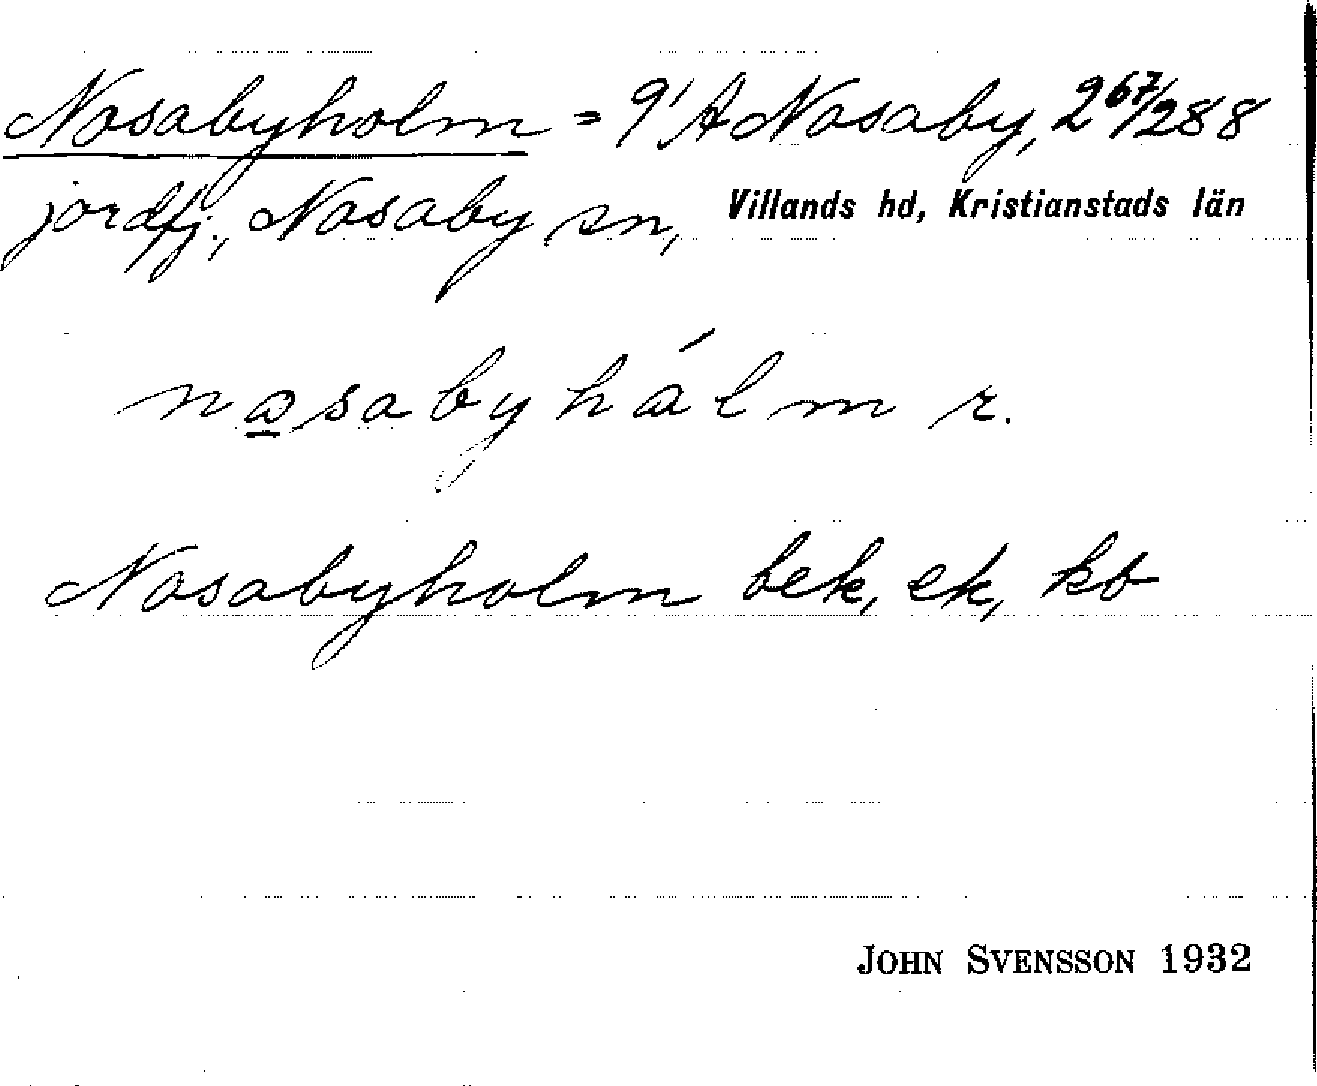 Nosabyholm = 9¹ A Nosaby, 2 67/288
jordfj., Nosaby sn, Villands hd, Kristianstads län
nasabyhálm r.
Nosabyholm bek, ek, kb
JOHN SVENSSON 1932